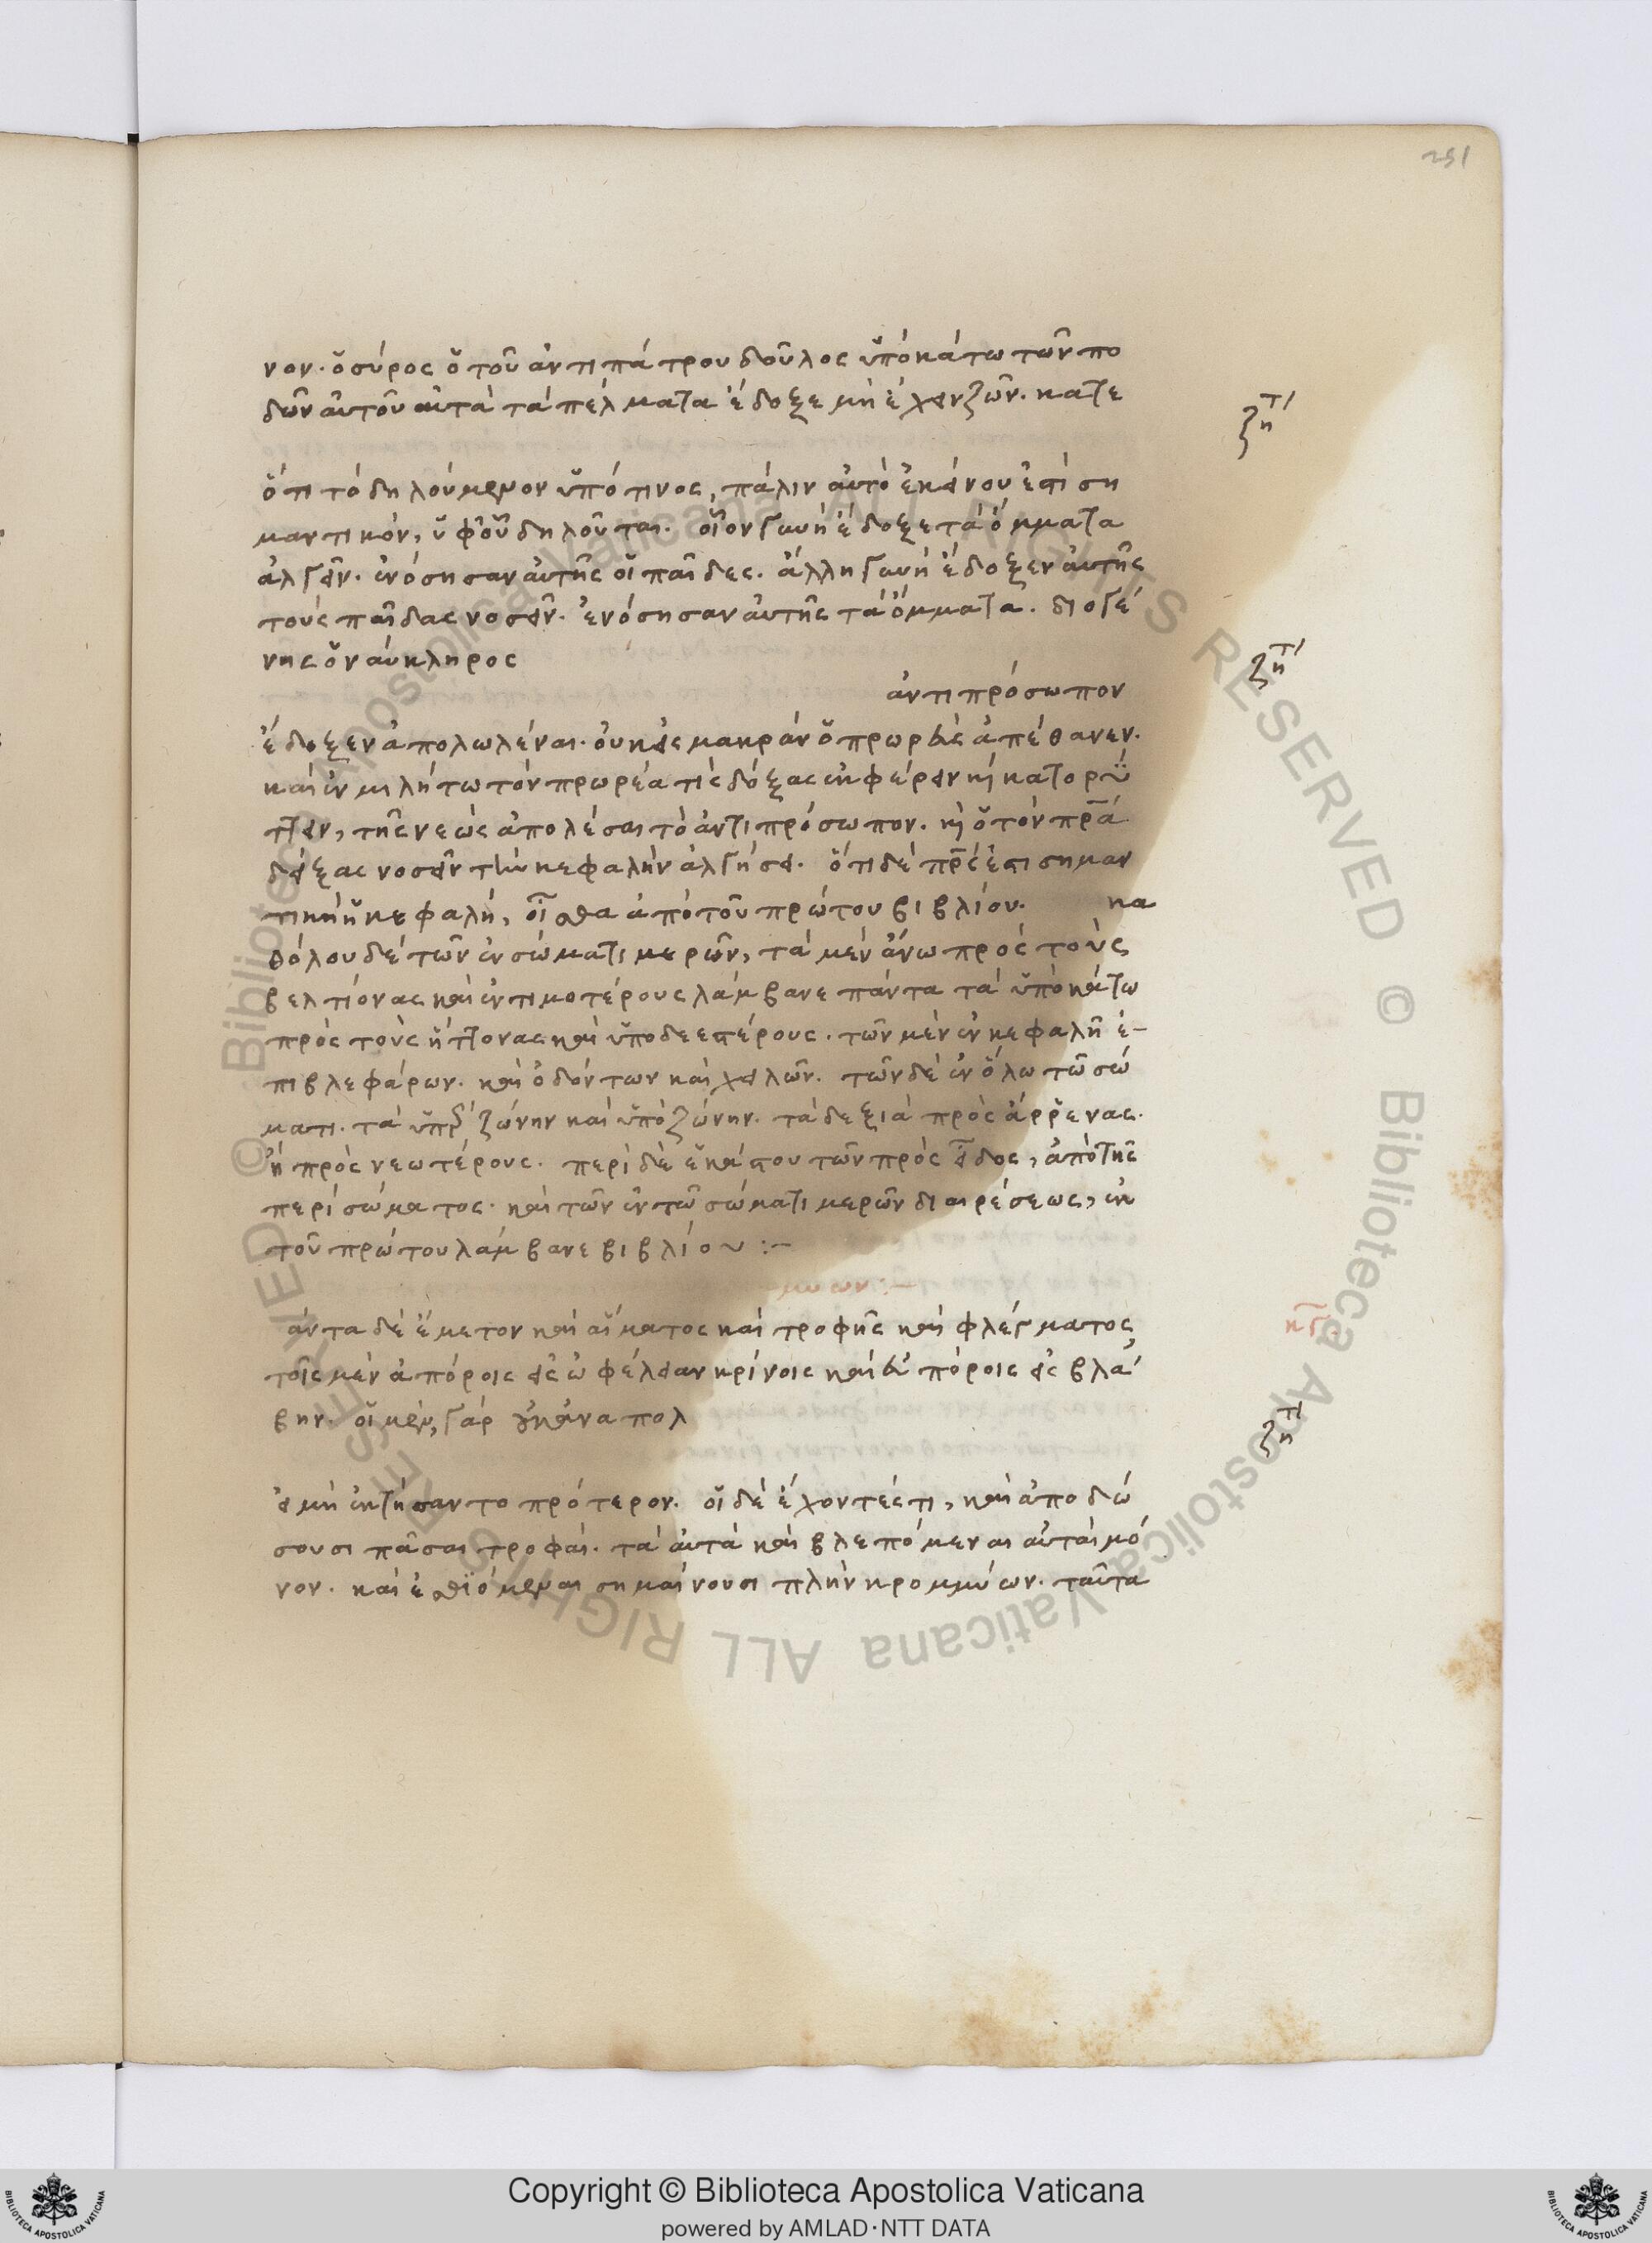 251
νον. ὁ σύρος ὁ τοῦ ἀντιπάτρου δοῦλος ὑποκάτω τῶν πο
δῶν αὐτοῦ αὐτὰ τὰ πέλματα ἔδοξε μὴ ἔχειν ζῶν. κατε
ζητ
ὅτι τὸ δηλούμενον ὑπό τινος, πάλιν αὐτὸ ἐκείνου ἐστὶ ση
μαντικόν, ὑφ' οὗ δηλοῦται. οἷον γυνὴ ἔδοξε τὰ ὄμματα
ἀλγεῖν. ἐνόσησαν αὐτῆς οἱ παῖδες. ἄλλη γυνὴ ἔδοξεν αὐτῆς
τοὺς παῖδας νοσεῖν. ἐνόσησαν αὐτῆς τὰ ὄμματα. διογέ
νης ὁ ναύκληρος
ζητ
ἀντιπρόσωπον
ἔδοξεν ἀπολωλέναι. οὐκ εἰς μακρὰν ὁ πρωρεὺς ἀπέθανεν.
καὶ ἐν μιλήτω τὸν πρωρέα τὶς δόξας ἐκφέρειν καὶ κατορύ
ττειν, τῆς νεὼς ἀπολέσαι τὸ ἀντιπρόσωπον. καὶ ὁ τὸν πρα
δόξας νοσεῖν τὴν κεφαλὴν ἀλγήσει. ὅτι δὲ πρς ἐστι σημαν
τικὴ ἡ κεφαλή, οἶσθα ἀπὸ τοῦ πρώτου βιβλίου. κα
θόλου δὲ τῶν ἐν σώματι μερῶν, τὰ μὲν ἄνω πρὸς τοὺς
βελτίονας καὶ ἐντιμοτέρους λάμβανε πάντα τὰ ὑποκάτω
πρὸς τοὺς ἥττονας καὶ ὑποδεεστέρους. τῶν μὲν ἐν κεφαλῇ ἐ-
πι βλεφάρων. καὶ ὀδόντων καὶ χειλῶν. τῶν δὲ ἐν ὅλω τῶ σώ
ματι. τὰ ὑπὲρ ζώνην καὶ ὑπὸ ζώνην. τὰ δεξιὰ πρὸς ἄρρενας.
ἢ πρὸς νεωτέρους. περὶ δὲ ἑκάστου τῶν πρὸς εἶδος, ἀπὸ τῆς
περὶ σώματος. καὶ τῶν ἐν τῶ σώματι μερῶν διαιρέσεως, ἐκ
τοῦ πρώτου λάμβανε βιβλίου :-
κγ
άντα δὲ ἔμετον καὶ αἵματος καὶ τροφῆς καὶ φλέγματος,
τοῖς μὲν ἀπόροις εἰς ὠφέλειαν κρίνοις καὶ εὐπόροις εἰς βλά
βην. οἱ μὲν, γὰρ πολ
ζητ
εἰ μὴ ἐκτήσαντο πρότερον. οἱ δὲ ἔχοντές τι, καὶ ἀποδώ
σουσι πᾶσαι τροφαί. τὰ αὐτὰ καὶ βλεπόμεναι αὐταὶ μό
νον. καὶ ἐσθϊόμεναι σημαίνουσι πλὴν κρομμύων. ταῦτα
© Biblioteca Apostolica Vaticana ALL RIGHTS RESERVED © Biblioteca Apostolica Vaticana ALL RIGHTS RESERVED
Copyright © Biblioteca Apostolica Vaticana
powered by AMLAD·NTT DATA
BIBLIOTECA APOSTOLICA VATICANA
BIBLIOTECA APOSTOLICA VATICANA